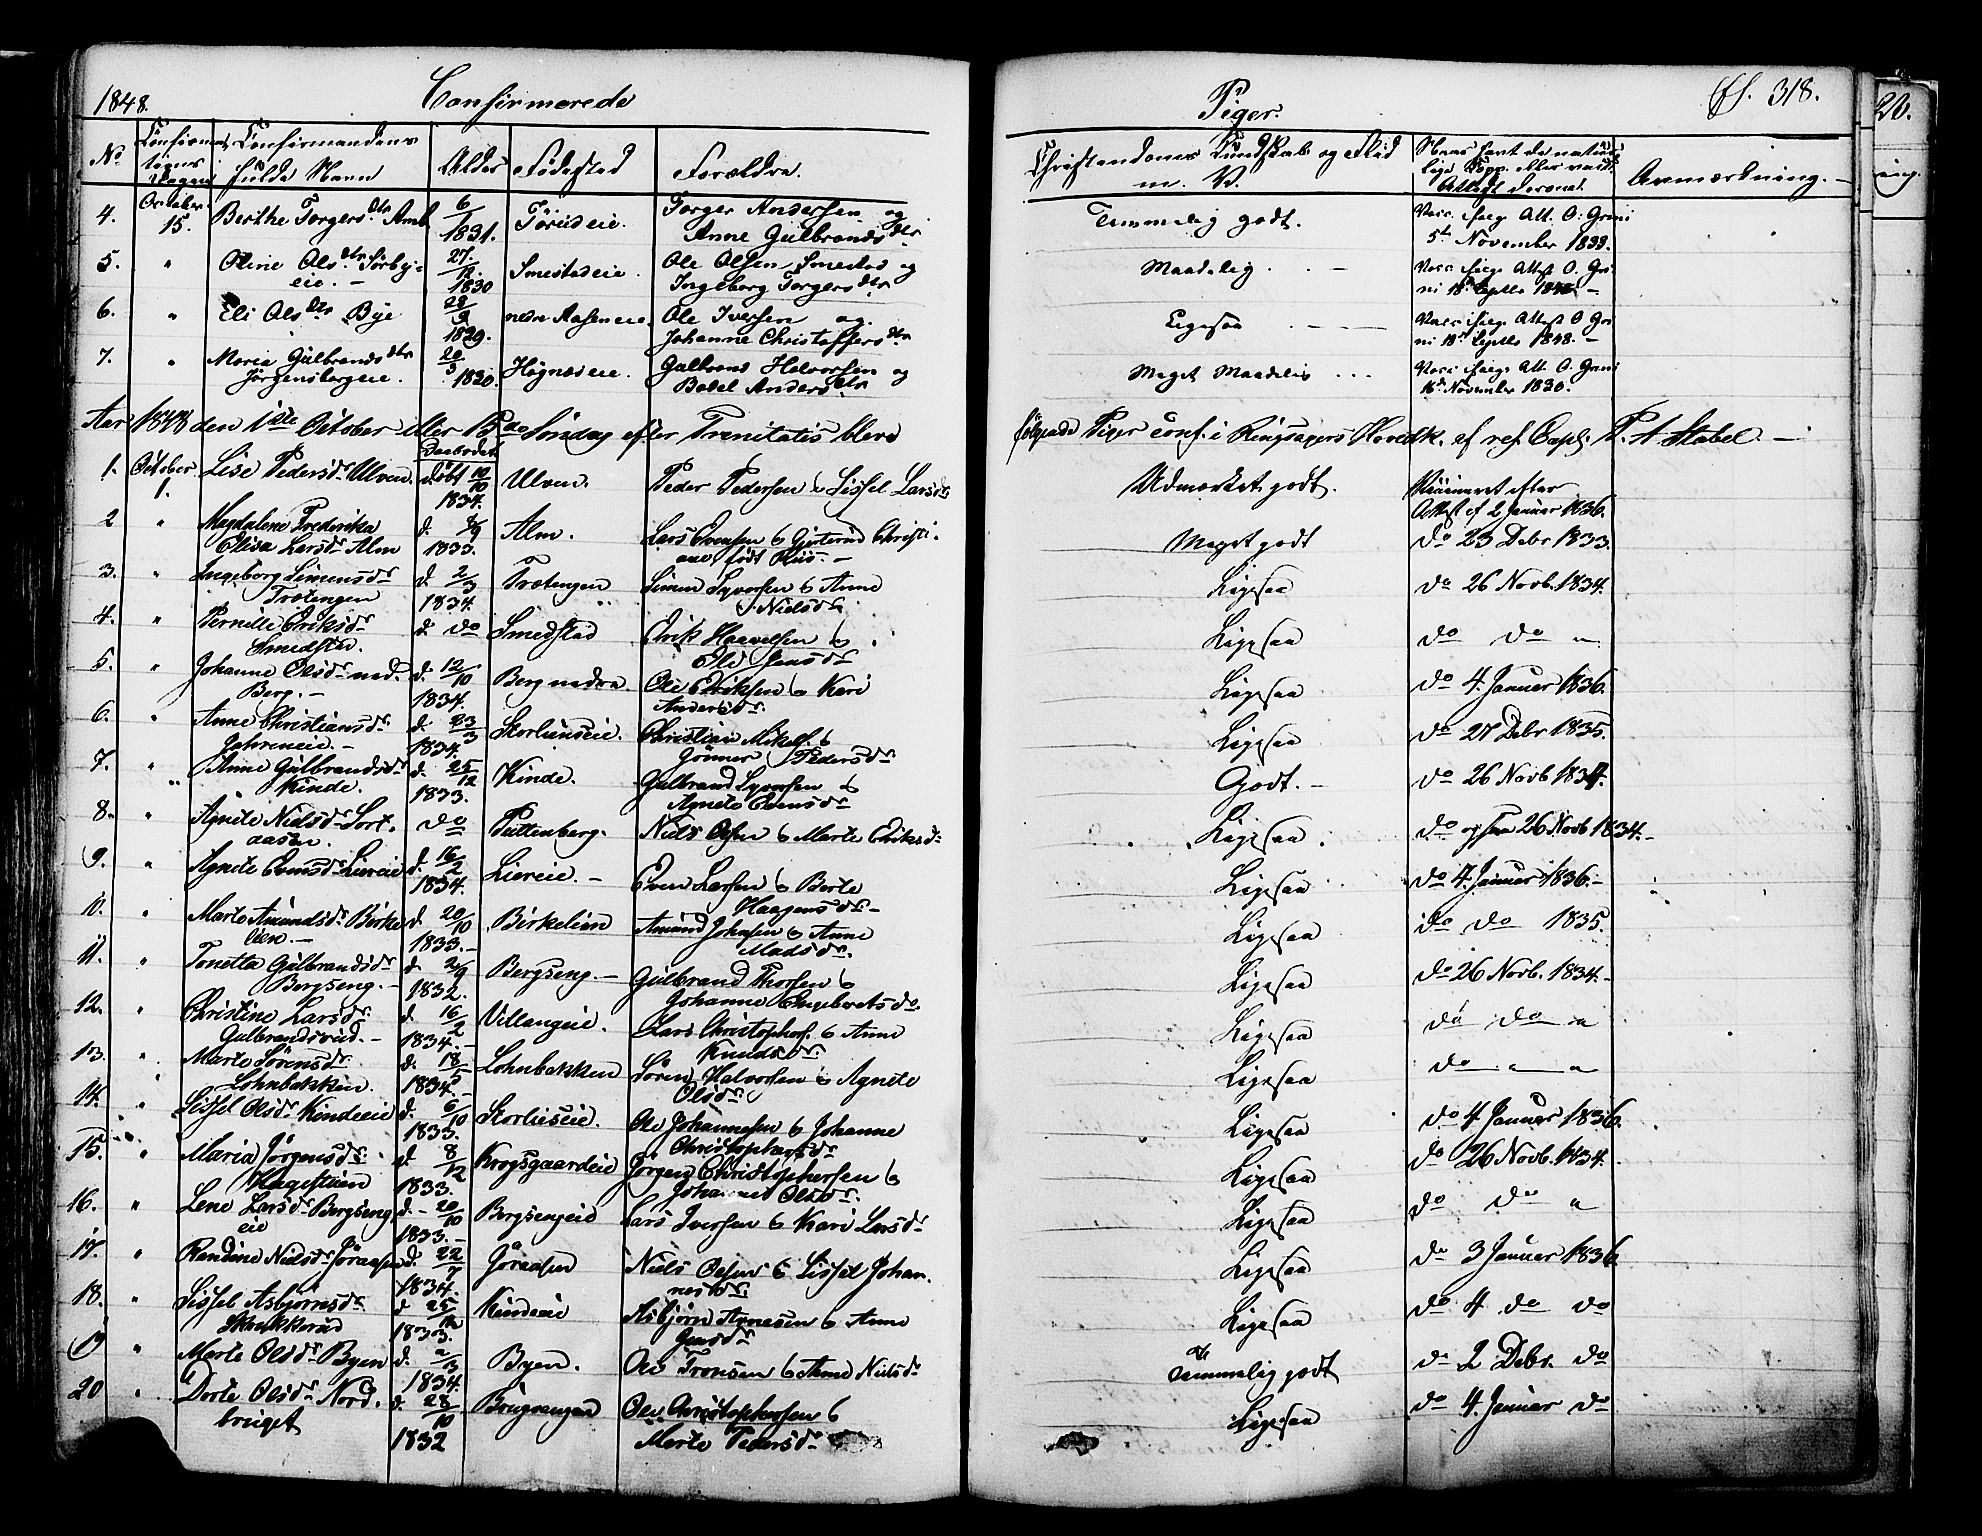 1848.
Confirmerede
Piger.
Fol. 318.
20.
No
Confirma-
tions
Dagen
Confirmandens
fulde Navn
Alder
Fødested
Forældre.
Christendoms Kundskab og Flid
m. V.
Avmærkning.
4. October 15. Berthe Torgersdtr Amb 6/1 1831. Torger Andersen og
Anne Gulbrandsdtr
Temmelig godt.
5t November 1833.
5. " Oline Olsdtr Sørby-
eie. 27/12 1830 Smestadeie. Ole Olsen Smestad og
Ingeborg Torgersdtr
Maadelig
6. " Eli Olsdtr Bye 28/9 1829. nedre Aaseneie. Ole Iversen og
Johanne Christoffersdtr
Ligesaa
7. " Maria Gulbrandsdtr
Jørgensbergeie. 20/3 1830. Høgnæseie. Gulbrand Halvorsen og
Bodel Andersdtr
Meget Maadelig
16d November 1830.
Aar 1848 den 1ste October eller 15de Søndag efter Trenitatis bleve
følgende Piger conf. i Ringsagers Hovedk. af res. Capl. P. A. Stabel.
1. October 1. Lise Pedersdr Ulven. døbt 10/10 1834. Ulven. Peder Pedersen & Sissel Larsdr
Udmærket godt.
Vaccineret efter
Attest af 2 Januar 1836.
2 " Magdalene Frederika
Elisa Larsdr Alm d. 1833. Alm. Lars Evensen & Gjertrud Christi-
ane født
Meget godt
do 23 Debr 1833.
3. " Ingeborg Simensdr
Trætengen d. 2/3 1834. Trætengen Simen Syversen & Anne
Nielsdr
Ligesaa
do 26 Novb. 1834.
4. " Pernille Eriksdr
Smedstad. d. do Smedstad Erik Haavelsen &
Ligesaa
do do "
5. " Johanne Olsdr ned.
Berg. d. 12/10 1834. Berg nedre. Ole Eriksen & Kari
Andersdr.
Ligesaa
do 4. Januar 1836.
6. " Anne Christiansdr
d. 23/3 1834. Skorlienseie. Christian Mikels. &
Pedersdr
Ligesaa
do 27 Debr 1835.
7. " Anne Gulbrandsdr
Kinde. d. 25/12 1833. Kinde. Gulbrand Syversen &
Agnete Evensdr
Godt.
do 26 Novb 1834.
8. " Agnete Nielsdr Sort-
aasen. do Puttenberg. Niels Olsen & Marte Eriksdr
Ligesaa.
do ogsaa 26 Novb 1834.
9. " Agnete Evensdr Liereie d. 16/2 1834. Liereie. Even Larsen & Berte
Haagensdr
Ligesaa
do 4. Januar 1836.
10. " Marte Amundsdr Birke-
lien. d. 20/10 1833. Birkelien Amund Johnsen & Anne
Madsdr.
Ligesaa
do do 1835.
11. " Tonetta Gulbrandsdr
Bergseng. d. 2/9 1832. Bergseng. Gulbrand Thorsen &
Johanne Engebretsdr
Ligesaa
do 26 Novb. 1834.
12. " Christine Larsdr
Gulbrandsrud. d. 16/2 1834. Villangeie. Lars Christophers. & Anne
Knudsdr.
Ligesaa
do do "
13. " Marte Sørensdr
Lohnbakken. d. 18/5 1834. Lohnbakken Søren Halvorsen & Agnete
Olsdr
Ligesaa
do " "
14. " Sissel Olsdr Kindeeie d. 6/10 1833. Skorlieseie. Ole Johannesen & Johanne
Christophersdr
Ligesaa
do 4 Januar 1836.
15. " Maria Jørgensdr
Hagestuen d. 8/12 1833. Krogsgaardeie Jørgen Christophersen &
Johanne Olsdr.
Ligesaa
do 26 Novb. 1834.
16. " Lene Larsdr Bergseng
eie d. 20/10 1833. Bergsengeie Lars Iversen & Kari Larsdr
Ligesaa
do do "
17. " Randine Nielsdr Jøraasen d. 22/7 1834. Jøraasen Niels Olsen & Sissel Johan-
nesdr.
Ligesaa
do 3 Januar 1836
18. " Sissel Asbjørnsdr
Skrukkerud d. 25/12 1833. Kindeeie Asbjørn Arnesen & Anne
Ligesaa
do 4 do do
19 " Marte Olsdr Byen d. 2/3 1834. Byen. Ole Tronsen & Anne Nielsdr
Temmelig godt
do 2 Debr. do
20 " Dorte Olsdr Nord-
bruget d. 28/10 1832 Ole Christophersen &
Marte Pedersdr
Ligesaa
do 4. Januar do